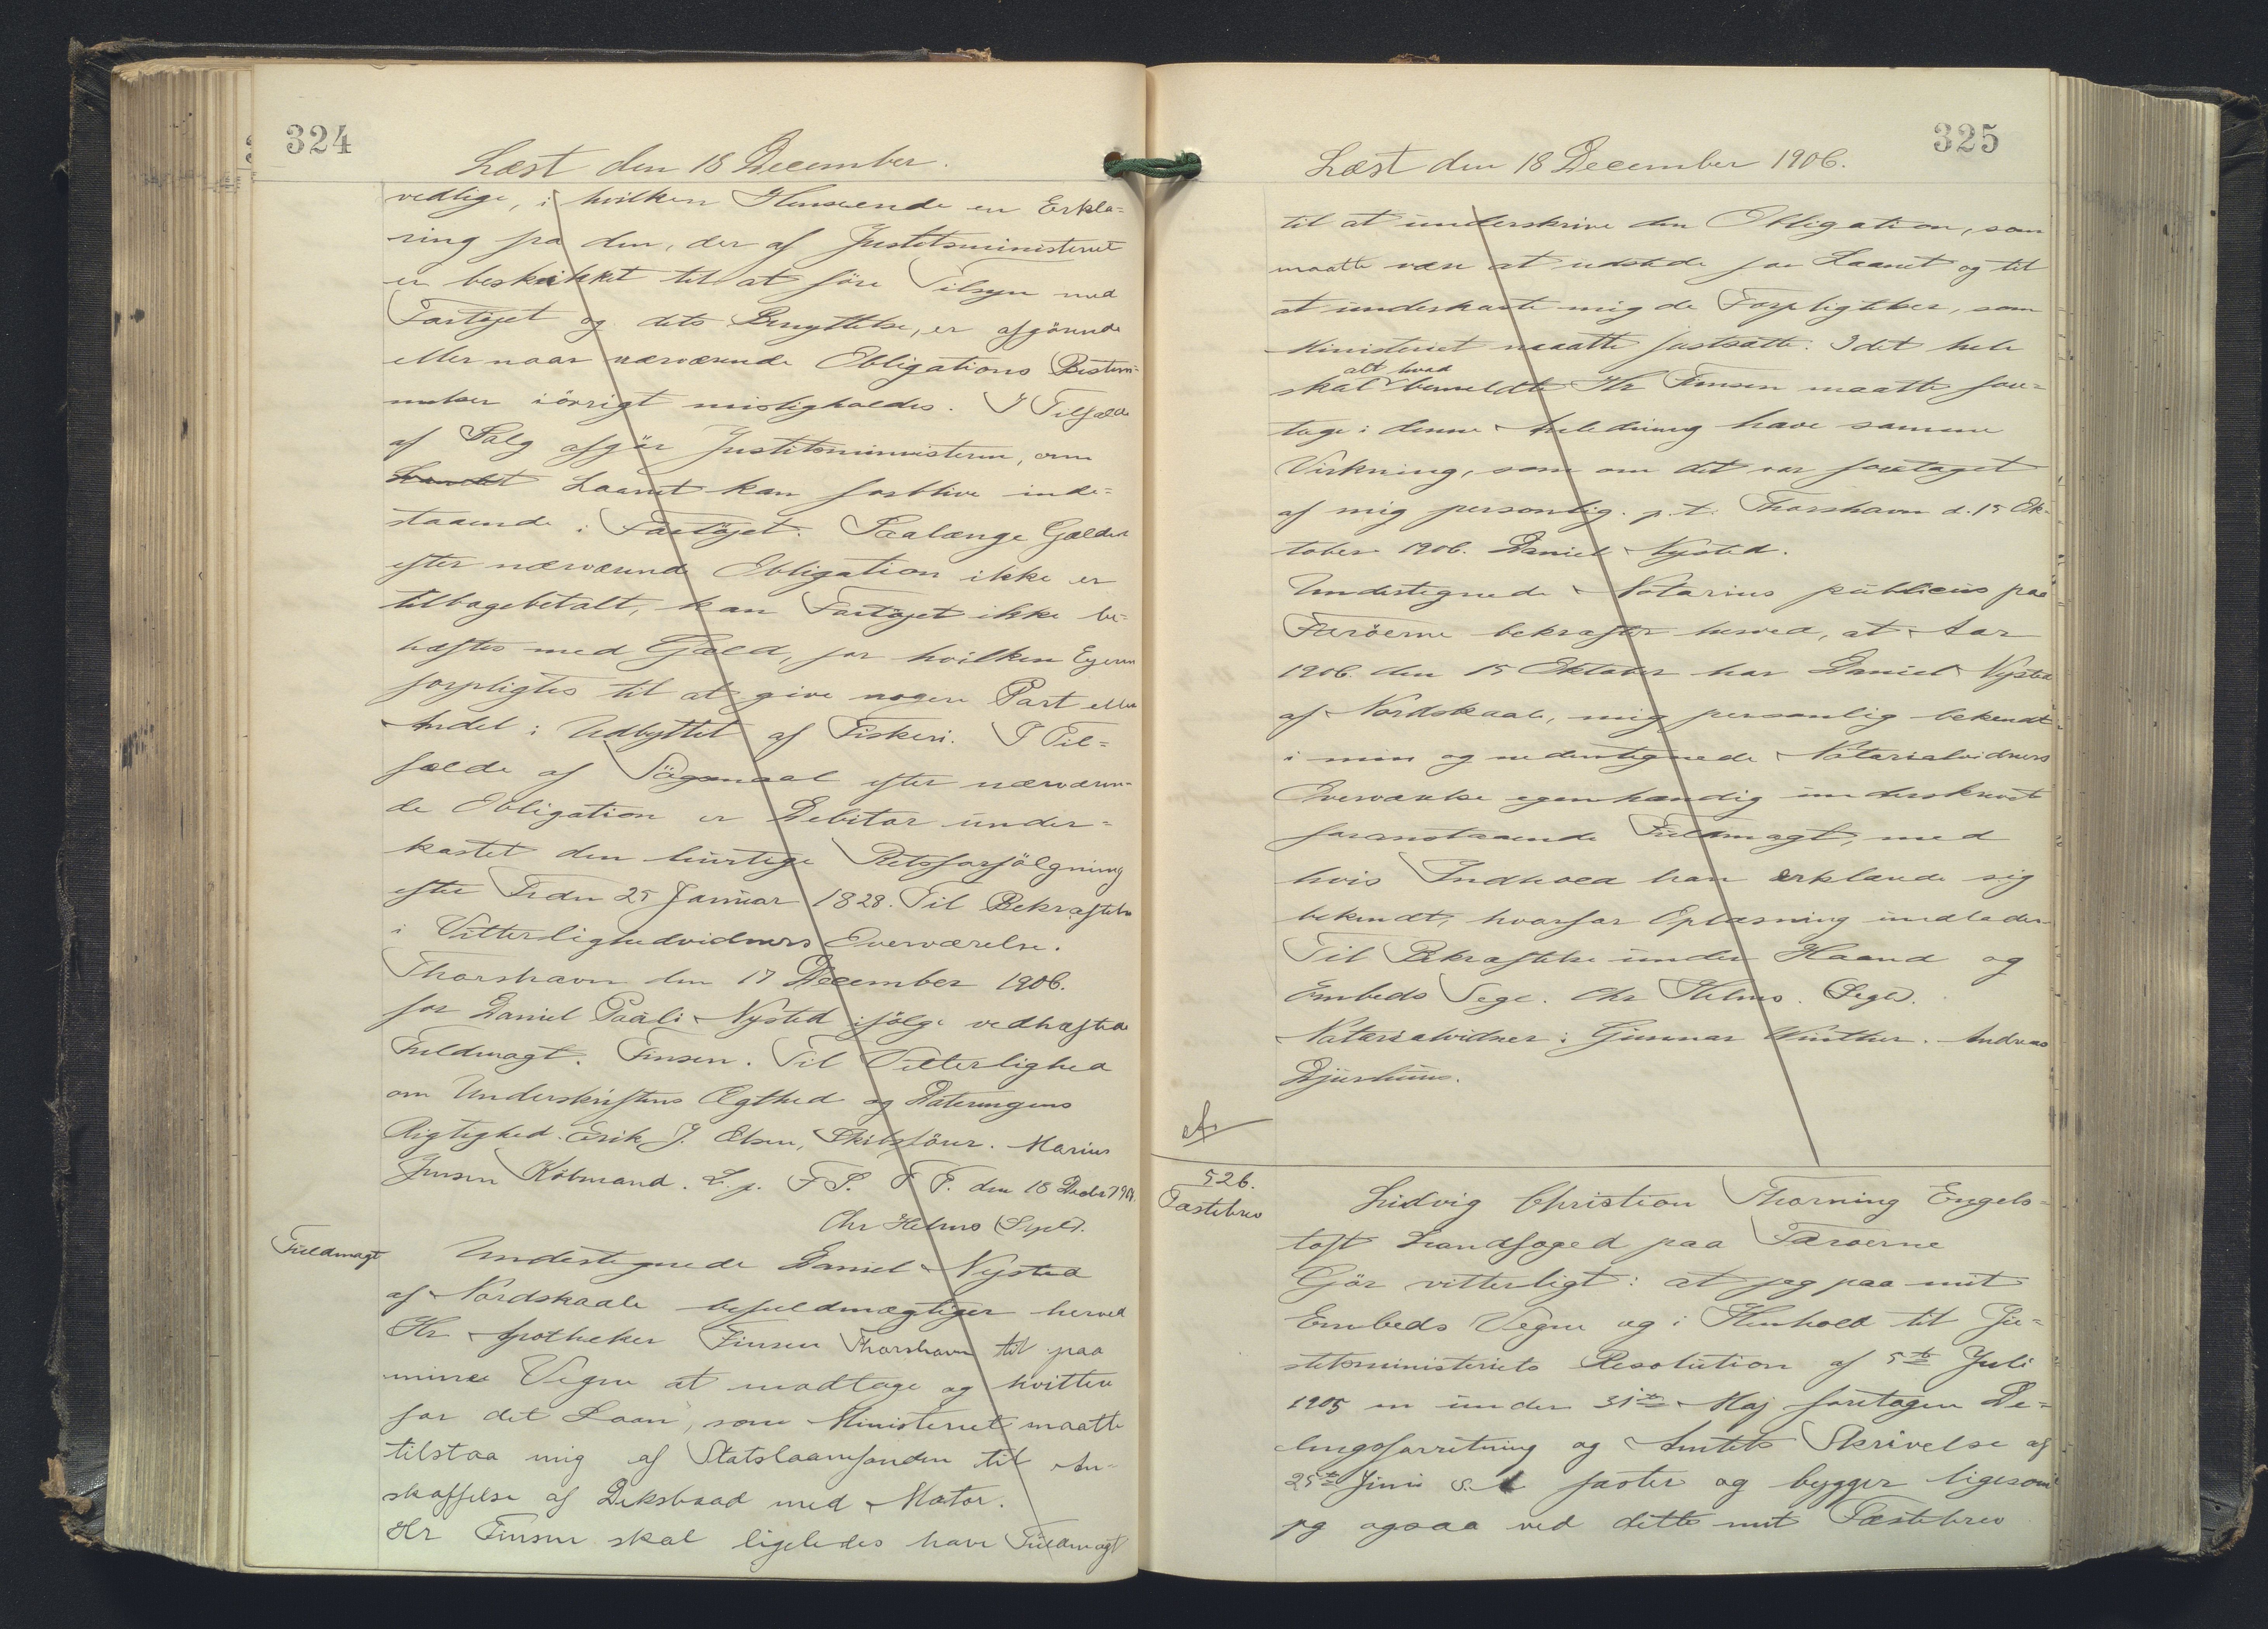 324
Læst den 18 December.
vedlige, i hvilken Henseende en Erklæ=
ring fra den, der af Justitsministeriet
er beskikket til at føre Tilsyn med
Fartøjet og dets Benyttelse, er afgørende
eller naar nærværende Obligations Bestem=
melser iøvrigt misligholdes. I Tilfælde
af Salg afgør Justitsministeren, om
Laanet kan forblive inde=
staaende i Fartøjet. Saalænge Gælden
efter nærværende Obligation ikke er
tilbagebetalt, kan Fartøjet ikke be=
hæftes med Gæld, for hvilken Ejeren
forpligtes til at give nogen Part eller
Andel i Udbyttet af Fiskeri. I Til=
fælde af Søgsmaal efter nærværen=
de Obligation er Debitor under=
kastet den hurtige Retsforfølgning
efter Frdn 25 Januar 1828. Til Bekræftelse
i Vitterlighedvidners Overværelse.
Thorshavn den 17 December 1906.
for Daniel Paali Nysted ifølge vedhæftede
Fuldmagt. Finsen. Til Vitterlighed
om Underskriftens Ægthed og Dateringens
Rigtighed. Erik J. Olsen, Skibsfører. Marius
Jensen Købmand. L. p. F S. F P. den 18 Decbr 1906.
Chr Helms (Segl).
Fuldmagt
Undertegnede Daniel Nysted
af Nordskaale befuldmægtiger herved
Hr Apotheker Finsen Thorshavn til paa
mine Vegne at modtage og kvittere
for det Laan, som Ministeriet maatte
tilstaa mig af Statslaanefonden til An=
skaffelse af Deksbaad med Motor.
Hr Finsen skal ligeledes have Fuldmagt
325
Læst den 18 December 1906.
til at underskrive den Obligation, som
maatte være at udstede for Laanet og til
at underkaste mig de Forpligtelser, som
Ministeriet maatte fastsætte. I det hele
alt hvad
skal bemeldte Hr Finsen maatte fore=
tage i denne Anledning have samme
Virkning, som om det var foretaget
af mig personlig. p. t. Thorshavn d. 15 Ok=
tober 1906. Daniel Nysted.
Undertegnede Notarius publicus paa
Færøerne bekræfter herved, at Aar
1906 den 15 Oktober har Daniel Nysted
af Nordskaale, mig personlig bekendt
i min og nedentegnede Notarialvidners
Overværelse egenhændig underskrevet
foranstaaende Fuldmagt, med
hvis Indhold han erklærede sig
bekendt, hvorfor Oplæsning undlades
Til Bekræftelse under Haand og
Embeds Segl. Chr Helms. (Segl).
Notarialvidner: Gunnar Winther. Andreas
Djurhuus.
526.
Fæstebrev
Ludvig Christian Thorning Engels=
toft Landfoged paa Færøerne
Gør vitterligt: at jeg paa mit
Embeds Vegne og i Henhold til Ju=
stitsministeriets Resolution af 5te Juli
1905 en under 31te Maj foretagen De=
lingsforretning og Amtets Skrivelse af
25de Juni s. A fæster og bygger ligesom
jeg ogsaa ved dette mit Fæstebrev